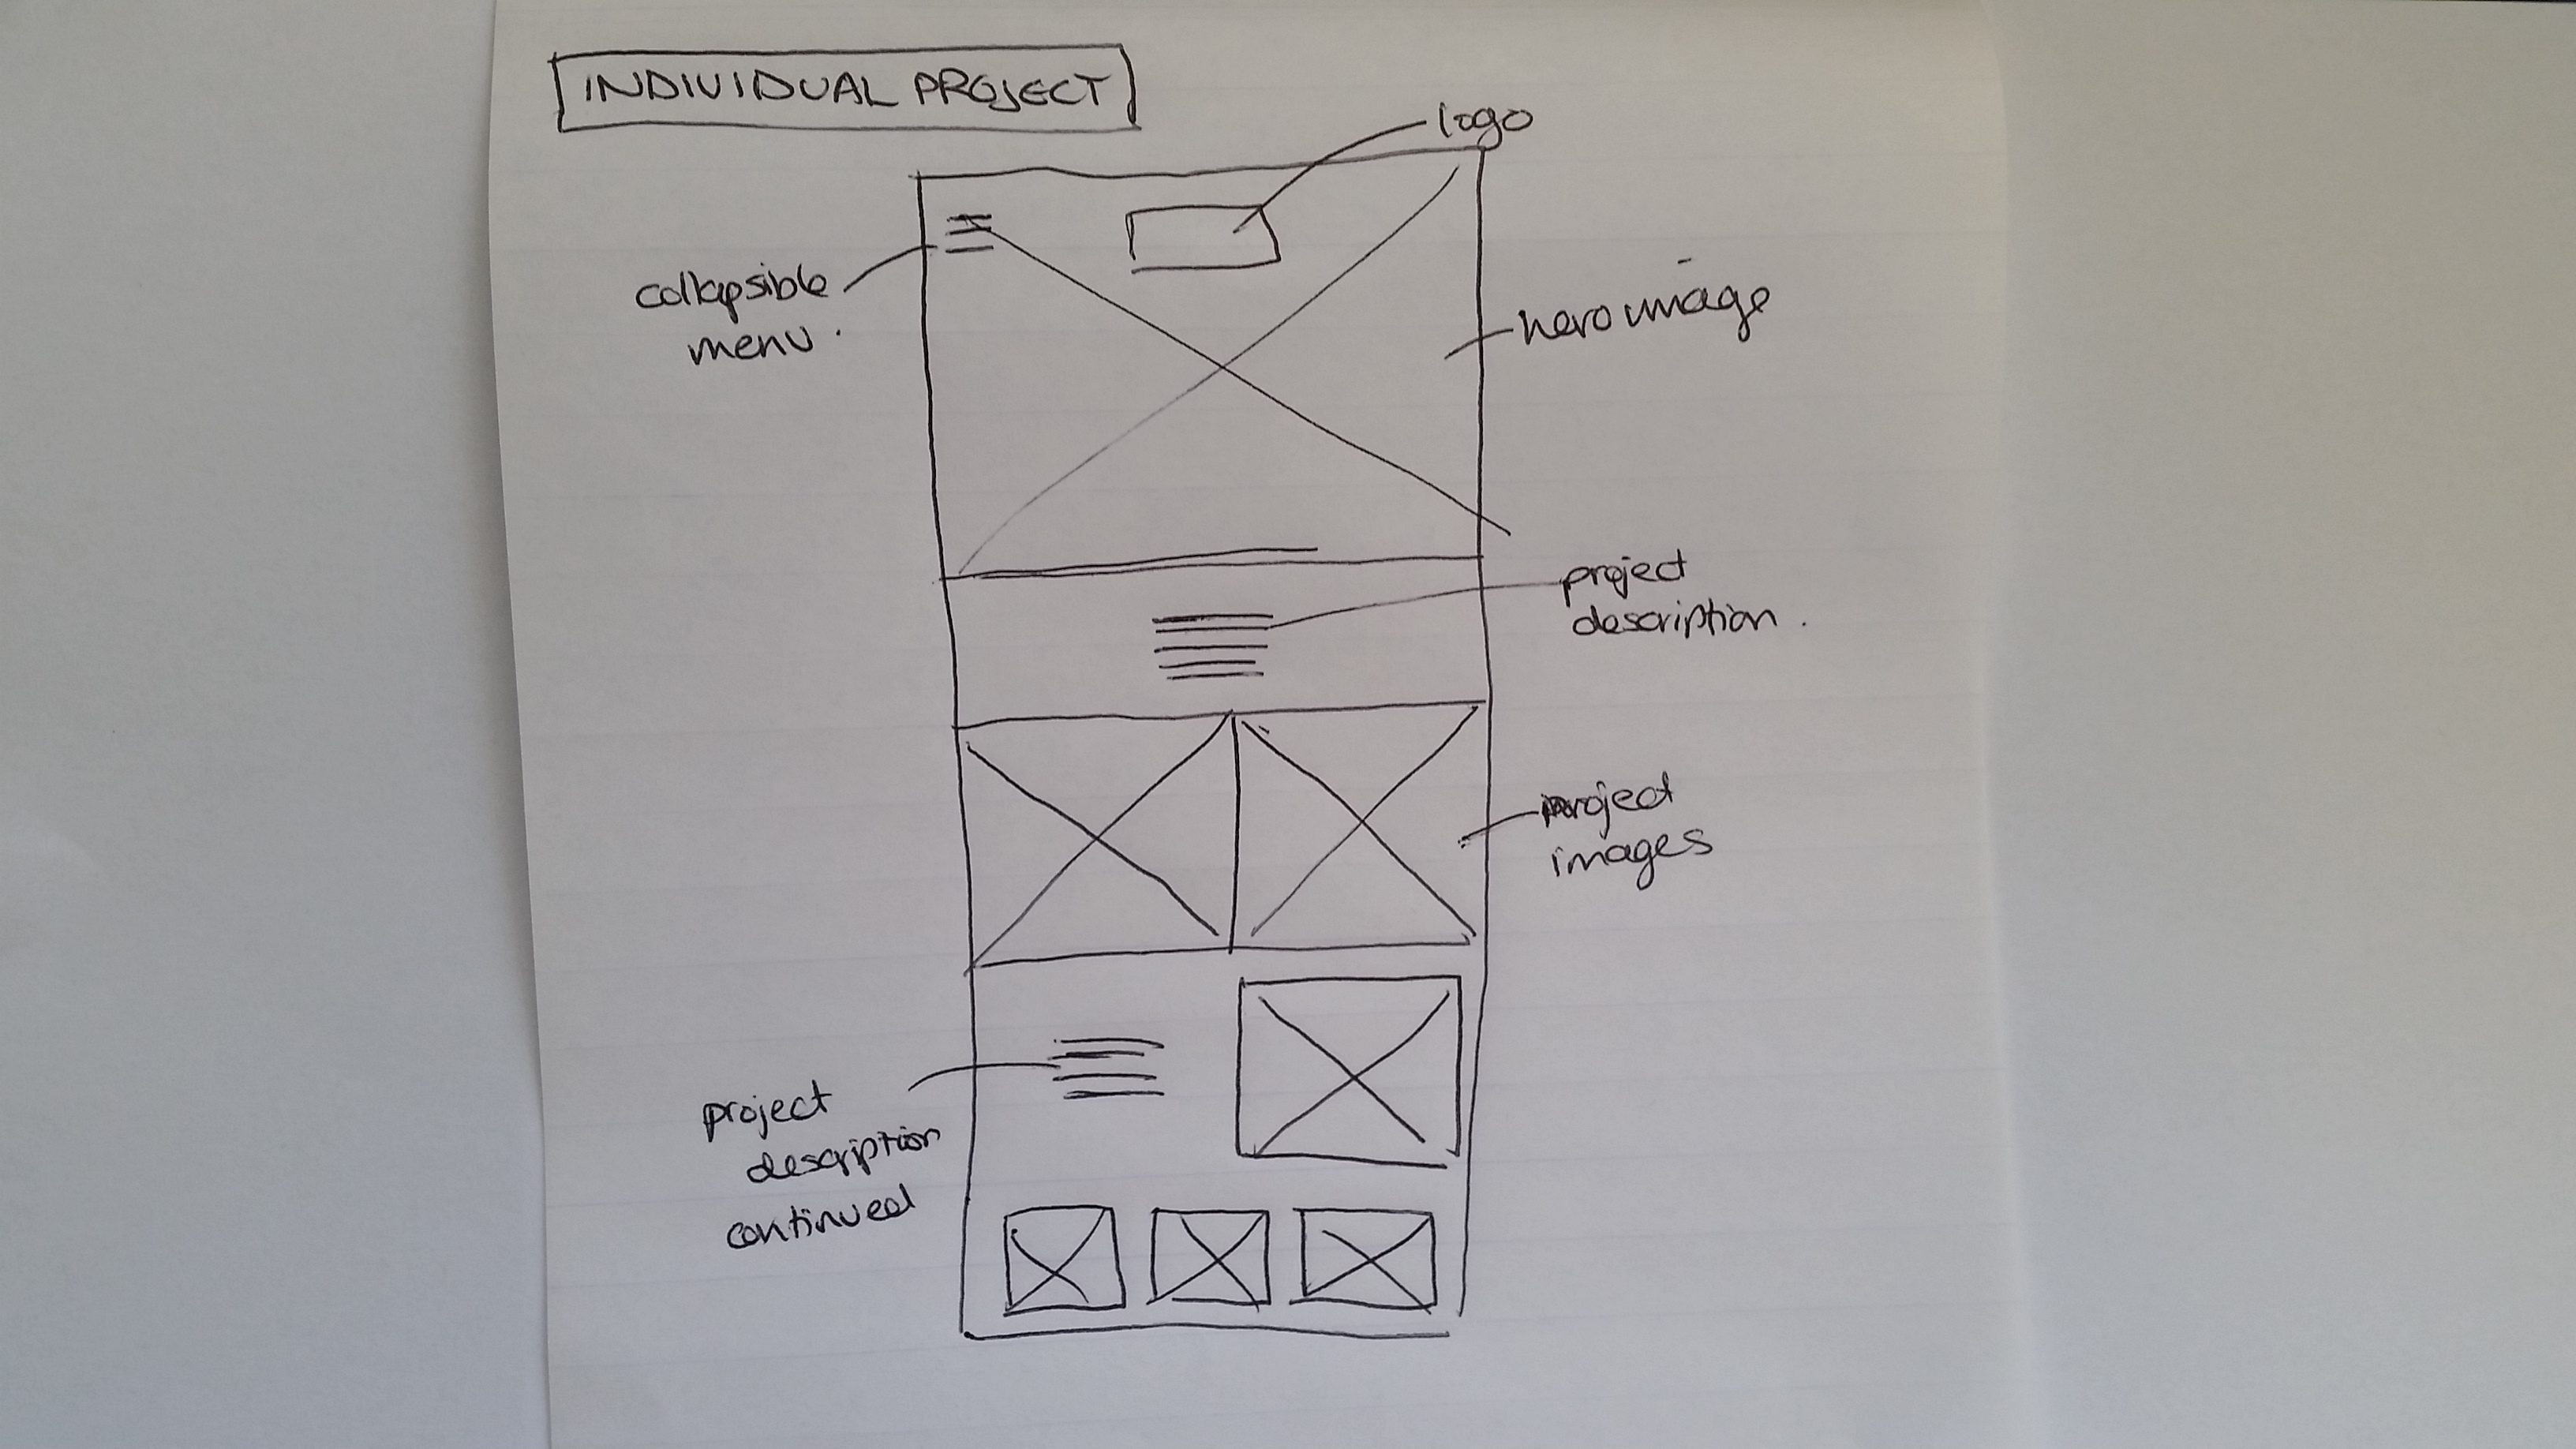 INDIVIDUAL PROJECT
logo
collapsible
menu.
hero image
project
description.
project
images
project
description
continued